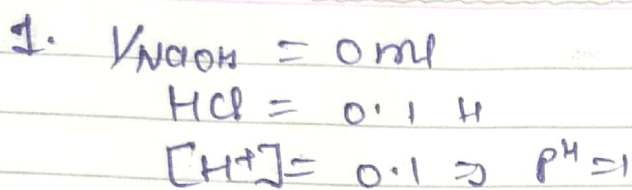 1. VNaOH = 0 ml
HCl = 0.1 M
[H+] = 0.1 ⇒ pH = 1